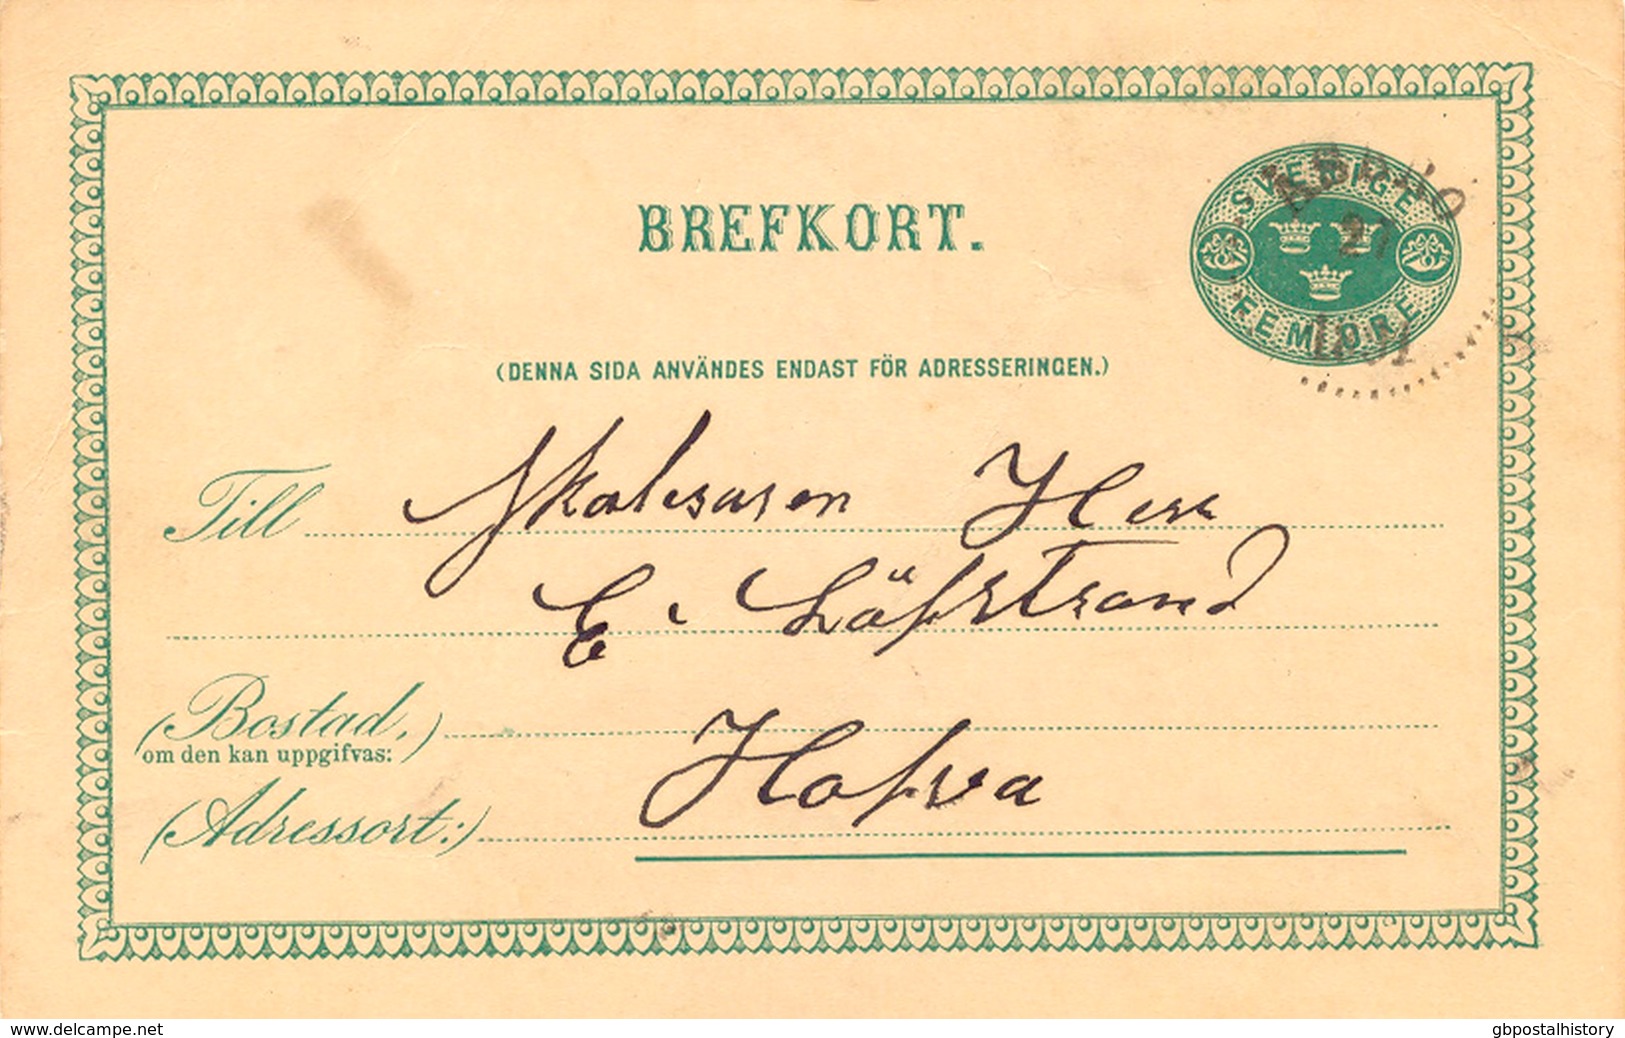 BREFKORT.
SVERIGE
FEM ÖRE
27
(DENNA SIDA ANVÄNDES ENDAST FÖR ADRESSERINGEN.)
Till Herr
E. Löfstrand
(Bostad,)
om den kan uppgifvas:
Hofva
(Adressort:)
www.delcampe.net
gbpostalhistory